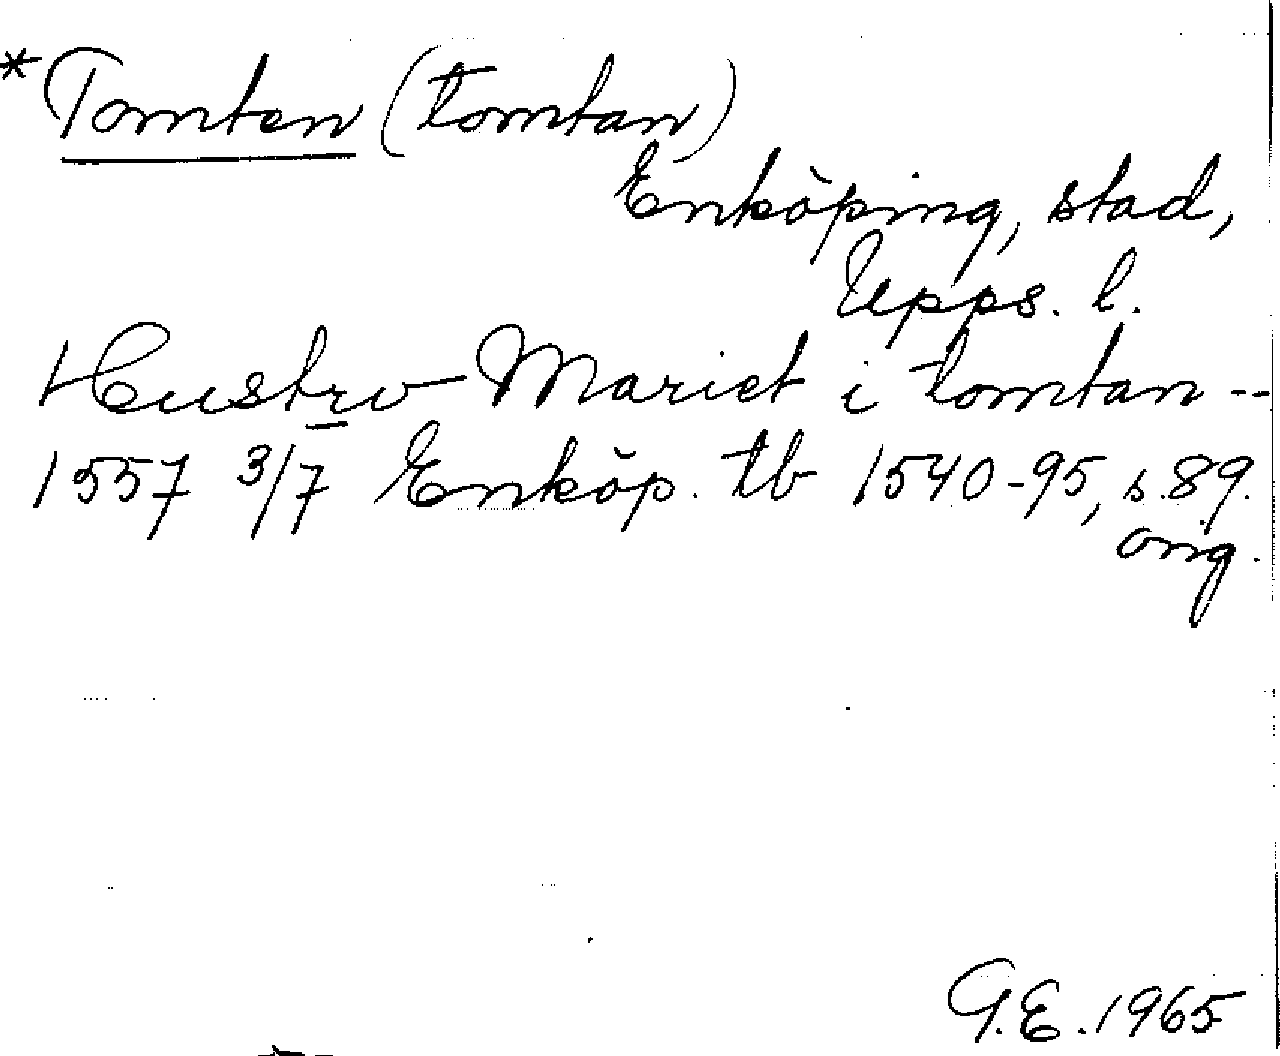 *Tomten (tomtan)
Enköping, stad,
Upps. l.
Hustrv Mariet i tomtan --
1557 3/7 Enköp. tb 1540-95, s. 89.
orig.
G.E. 1965